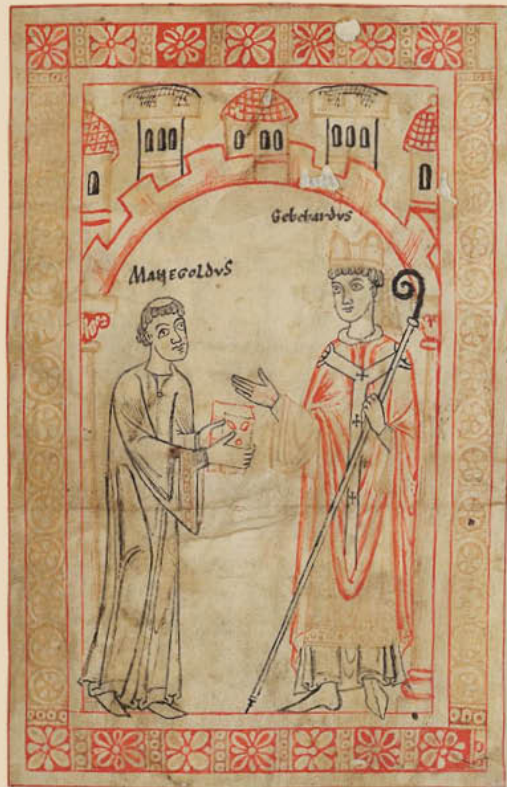 Gebehardvs
MANEGOLDVS